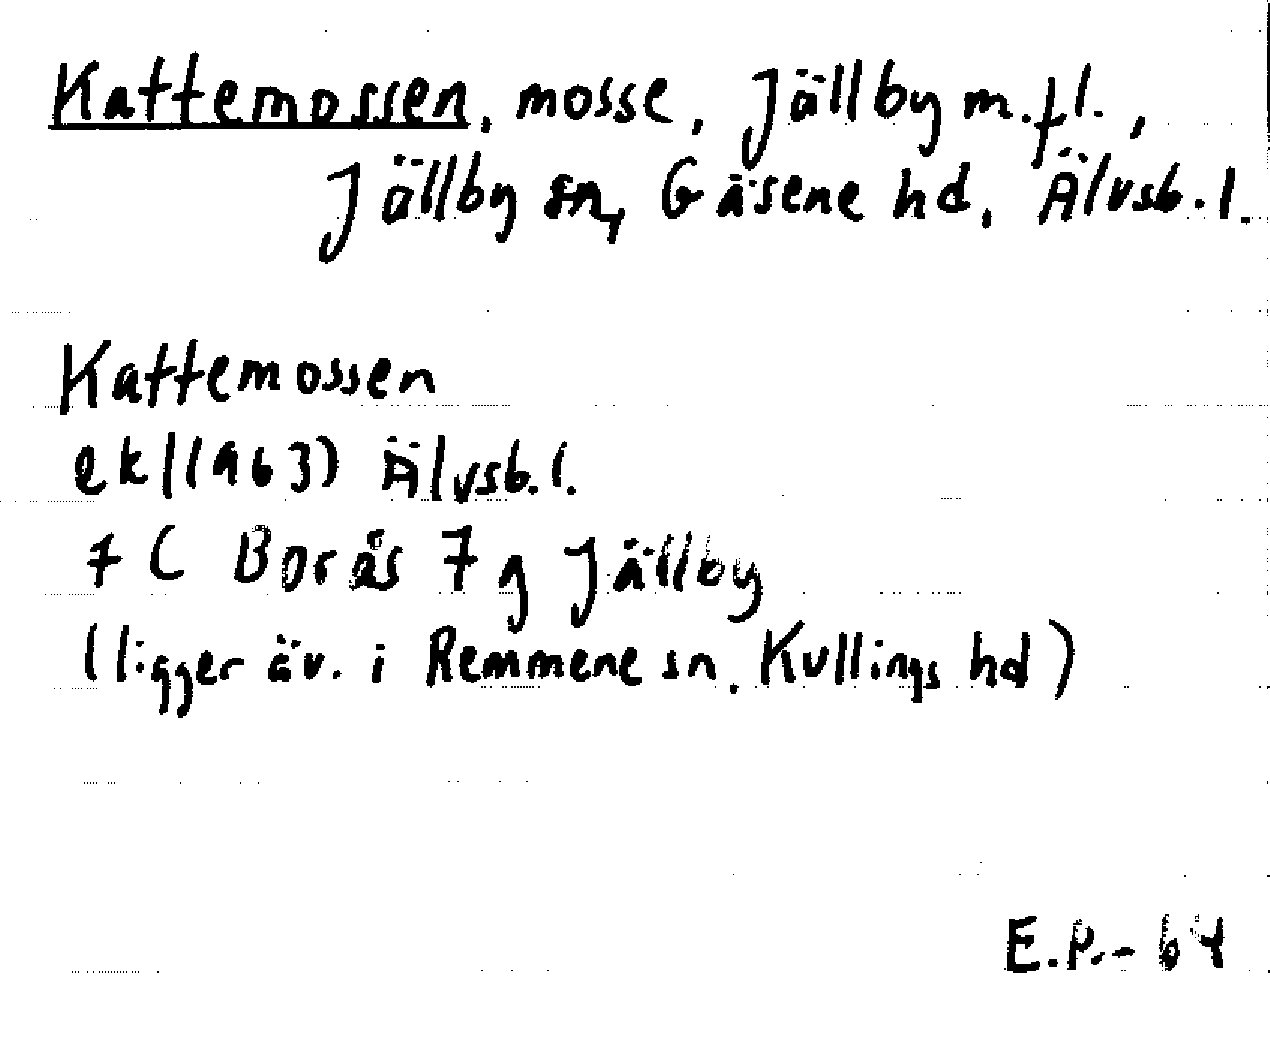 Kattemossen, mosse, Jällby m.fl.,
Jällby sn, Gäsene hd, Älvsb.l.
Kattemossen
ek (1963) Älvsb.l.
7 C Borås 7 g Jällby
(ligger äv. i Remmene sn, Kullings hd)
E.P.-64